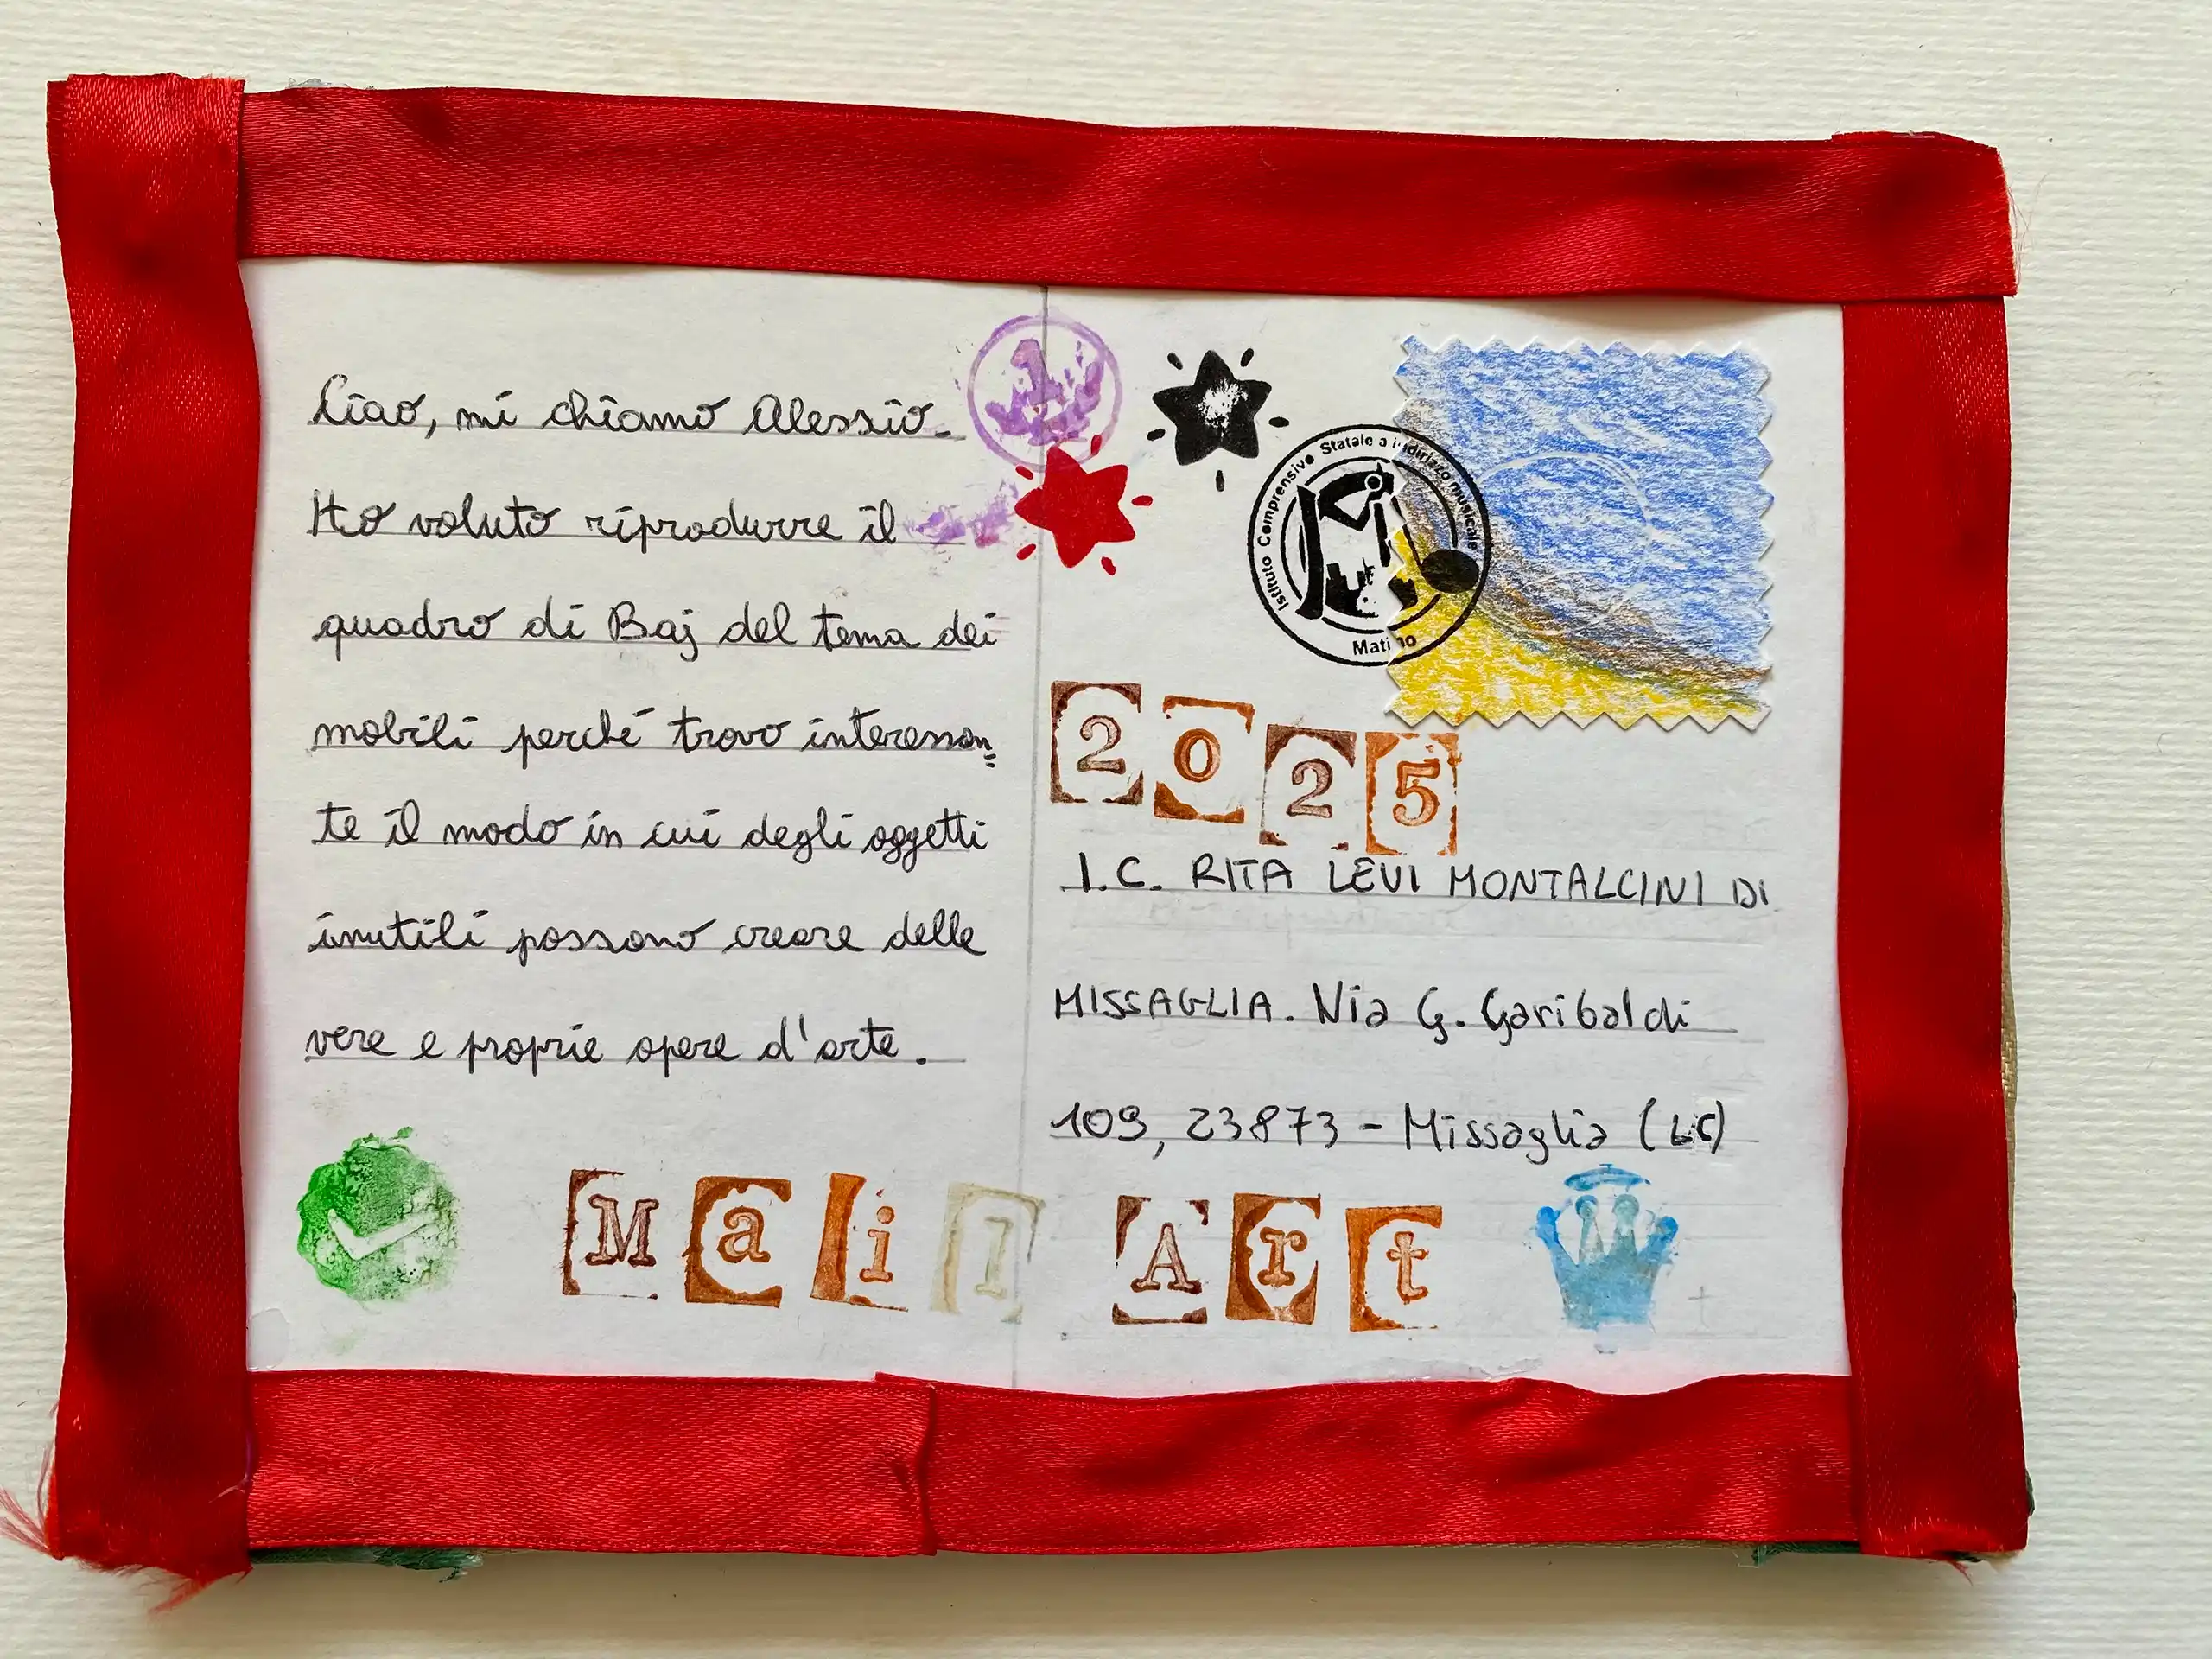 Ciao, mi chiamo Alessio.
Ho voluto riprodurre il
quadro di Baj del tema dei
mobili perché trovo interessan=
te il modo in cui degli oggetti
inutili possono creare delle
vere e proprie opere d'arte.
1
Istituto Comprensivo Statale a indirizzo musicale
Matino
2025
I.C. RITA LEVI MONTALCINI DI
MISSAGLIA. Via G. Garibaldi
109, 23873 - Missaglia (LC)
Mail Art